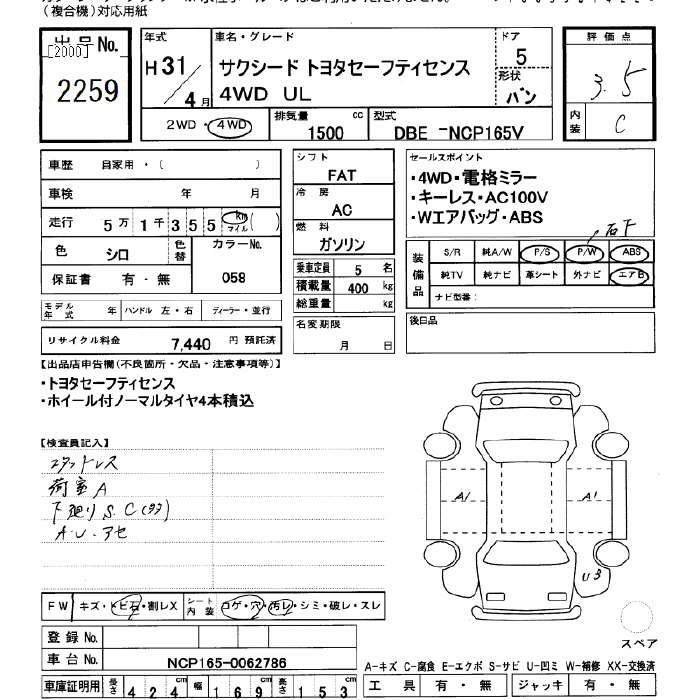 （複合機）対応用紙
出品No.
[2000]
2259
年式
H31/4月
車名・グレード
サクシード トヨタセーフティセンス
4WD UL
ドア
5
形状
バン
評価点
3.5
内装
C
2WD・4WD
排気量
1500 cc
型式
DBE -NCP165V
車歴 自家用・（ ）
車検 年 月
走行 5万1千355 km マイル（ ）
色 シロ
色替
カラーNo.
058
保証書 有・無
モデル年式 年
ハンドル 左・右
ディーラー・並行
リサイクル料金 7,440 円 預託済
シフト
FAT
冷房
AC
燃料
ガソリン
乗車定員 5 名
積載量 400 kg
総重量 kg
名変期限
月 日
セールスポイント
・4WD・電格ミラー
・キーレス・AC100V
・Wエアバッグ・ABS
右下
装備品
S/R 純A/W P/S P/W ABS
純TV 純ナビ 革シート 外ナビ エアB
ナビ型番：
後日品
【出品店申告欄（不良箇所・欠品・注意事項等）】
・トヨタセーフティセンス
・ホイール付ノーマルタイヤ4本積込
【検査員記入】
スタットレス
荷室A
下廻りS.C(タタ)
A・U・アセ
A1
A1
U3
FW キズ・トビ石・割レX
シート内装 コゲ・穴・汚レ・シミ・破レ・スレ
登録No.
車台No. NCP165-0062786
車庫証明用 長さ 424 cm 幅 169 cm 高さ 153 cm
スペア
A-キズ C-腐食 E-エクボ S-サビ U-凹ミ W-補修 XX-交換済
工具 有・無 ジャッキ 有・無